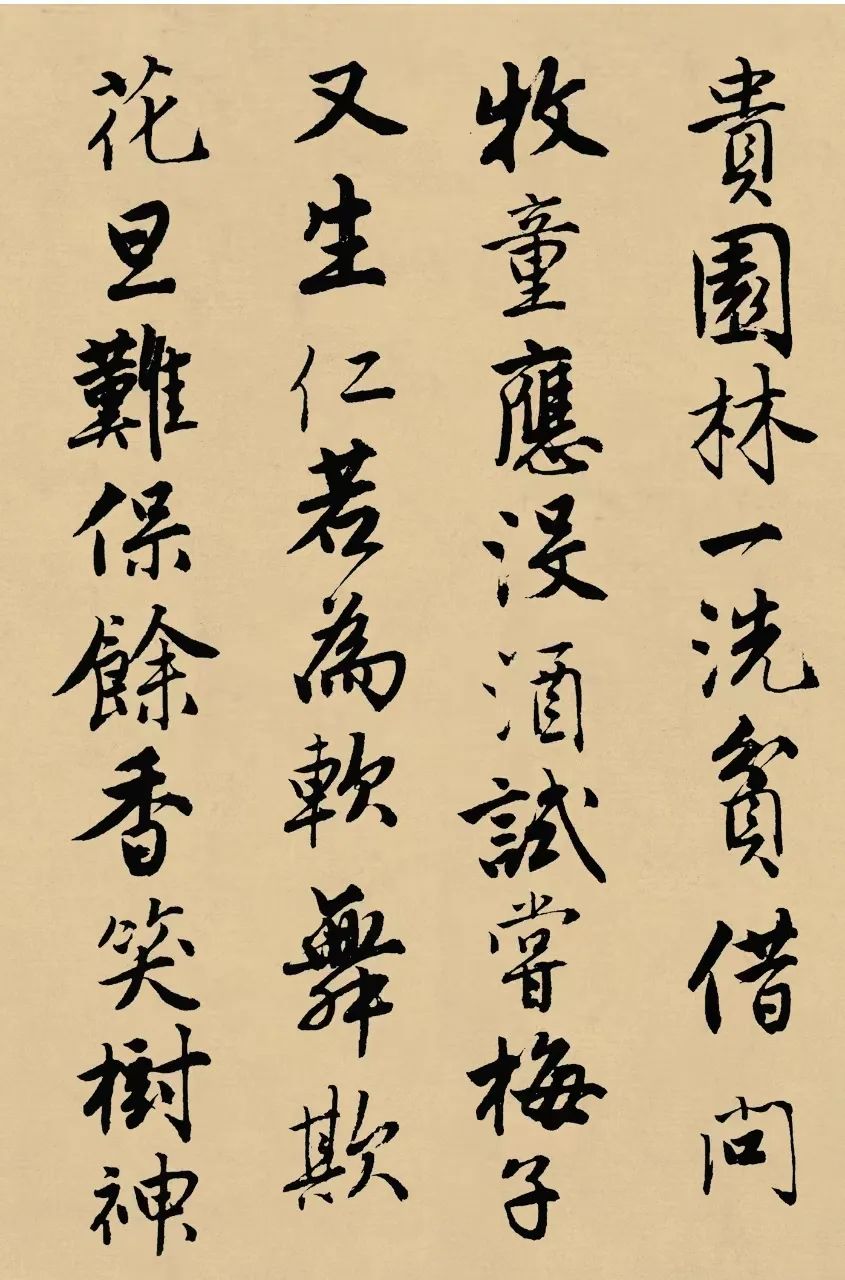 貴園林一洗貧借問
牧童應沒酒試嘗梅子
又生仁若為軟舞欺
花旦難保餘香笑樹神